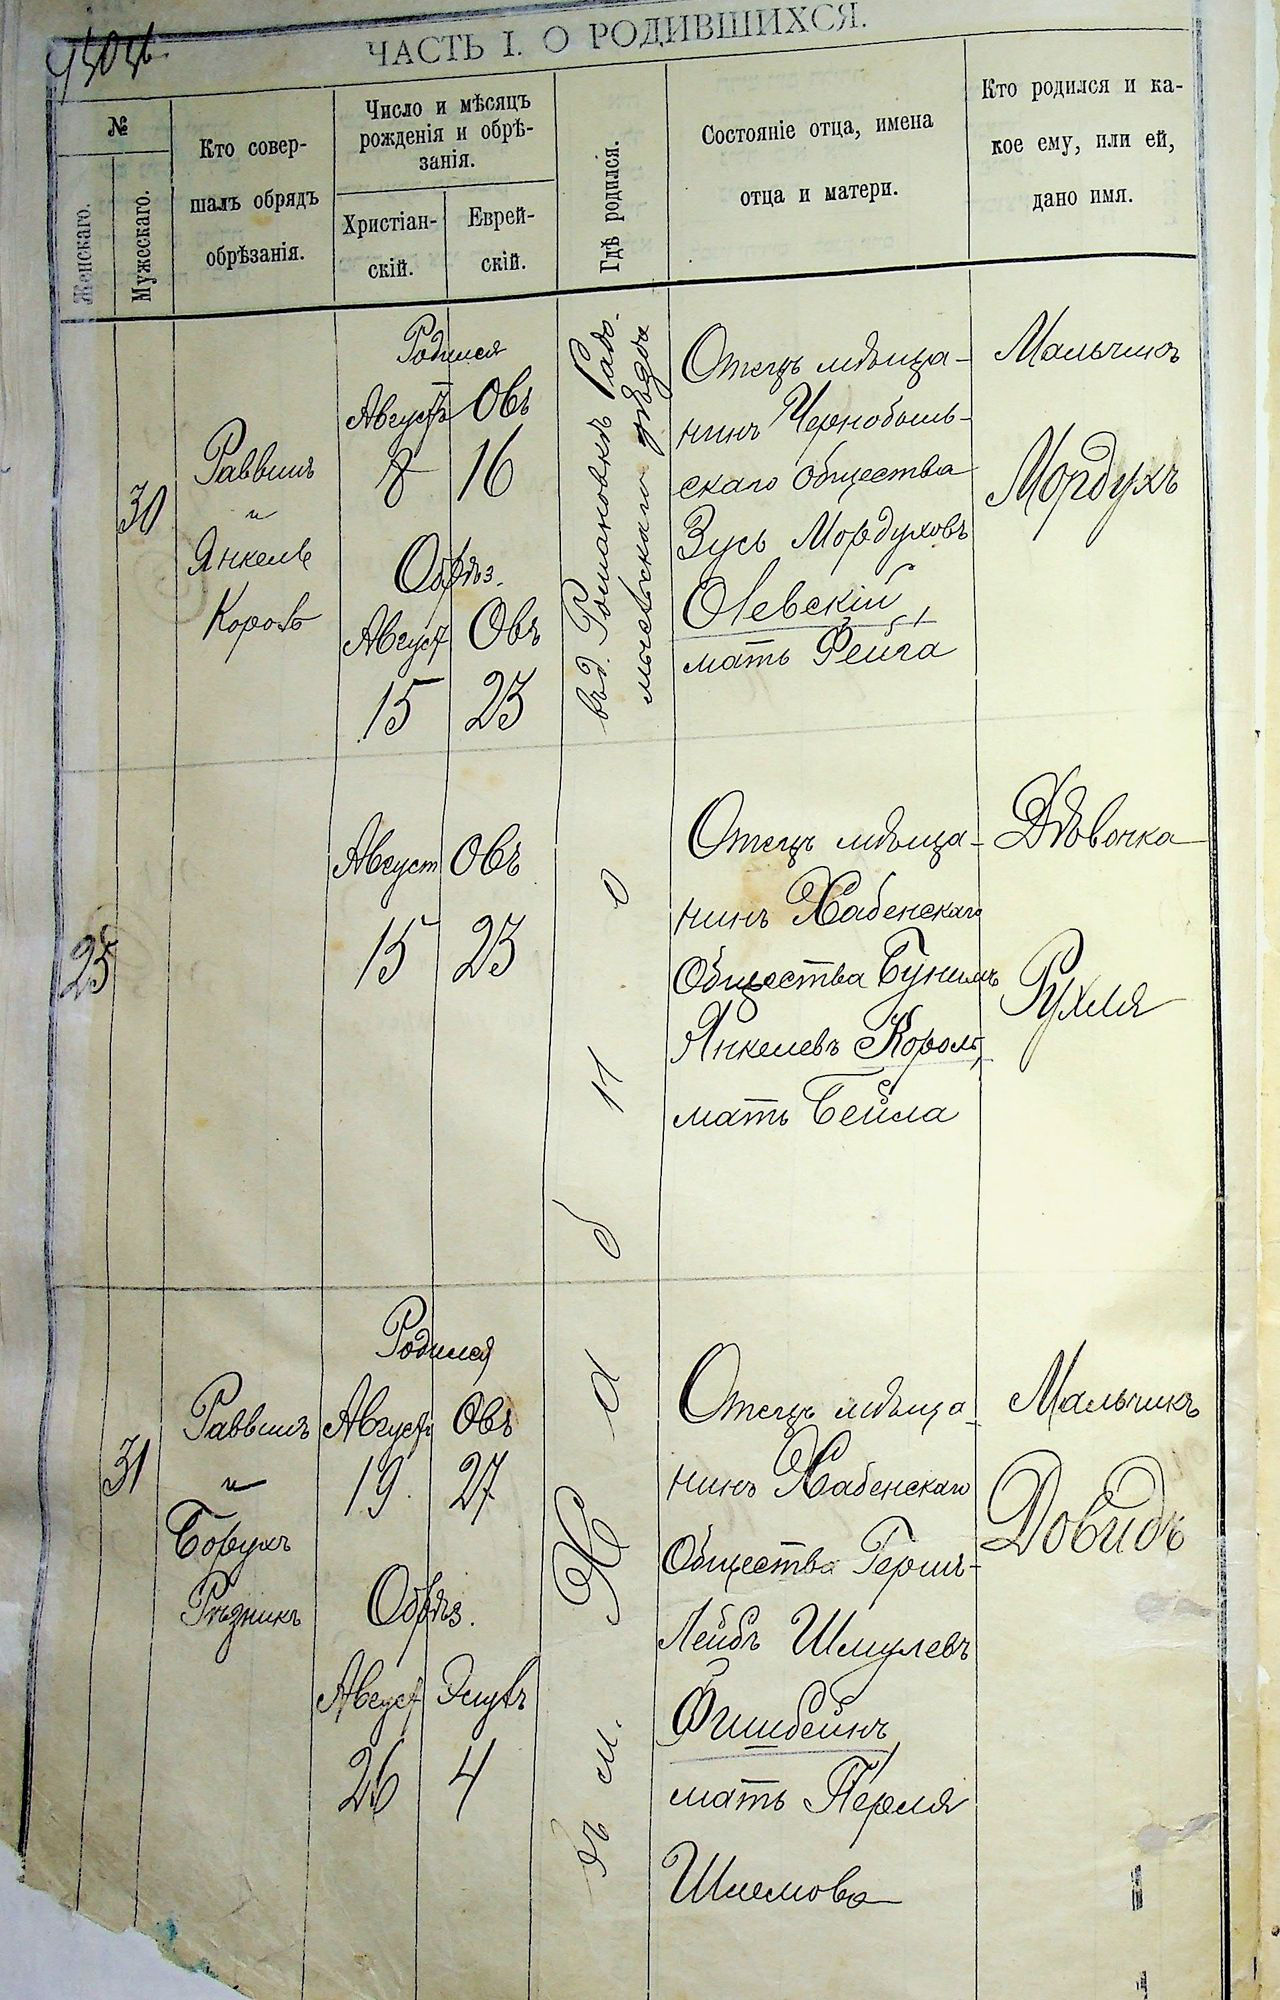 ЧАСТЬ I. О РОДИВШИХСЯ.
№
Женскаго.
Мужескаго.
Кто совер-
шалъ обрядъ
обрѣзанія.
Число и мѣсяцъ
рожденія и обрѣ-
занія.
Христіан-
скій.
Еврей-
скій.
Гдѣ родился.
Состояніе отца, имена
отца и матери.
Кто родился и ка-
кое ему, или ей,
дано имя.
30
Раввинъ
и
Янкель
Король
Родился
Августъ Овъ
8 16
Обрѣз.
Август Овъ
15 23
въ д. Романовкѣ Радо-
мысльскаго уѣзда
Отецъ мѣща-
нинъ Чернобыль-
скаго общества
Зусь Мордуховъ
Олевскій,
мать Фейга
Мальчикъ
Мордухъ
25
Август Овъ
15 23
Отецъ мѣща-
нинъ Хабенскаго
Общества Бунимъ
Янкелевъ Король,
мать Бейла
Дѣвочка
Рухля
въ м. Хабно
31
Раввинъ
и
Борухъ
Рѣзникъ
Родился
Августъ Овъ
19 27
Обрѣз.
Август Элулъ
26 4
Отецъ мѣща-
нинъ Хабенскаго
Общества Герш-
Лейбъ Шмулевъ
Фишбейнъ,
мать Перля
Шлемова
Мальчикъ
Довидъ